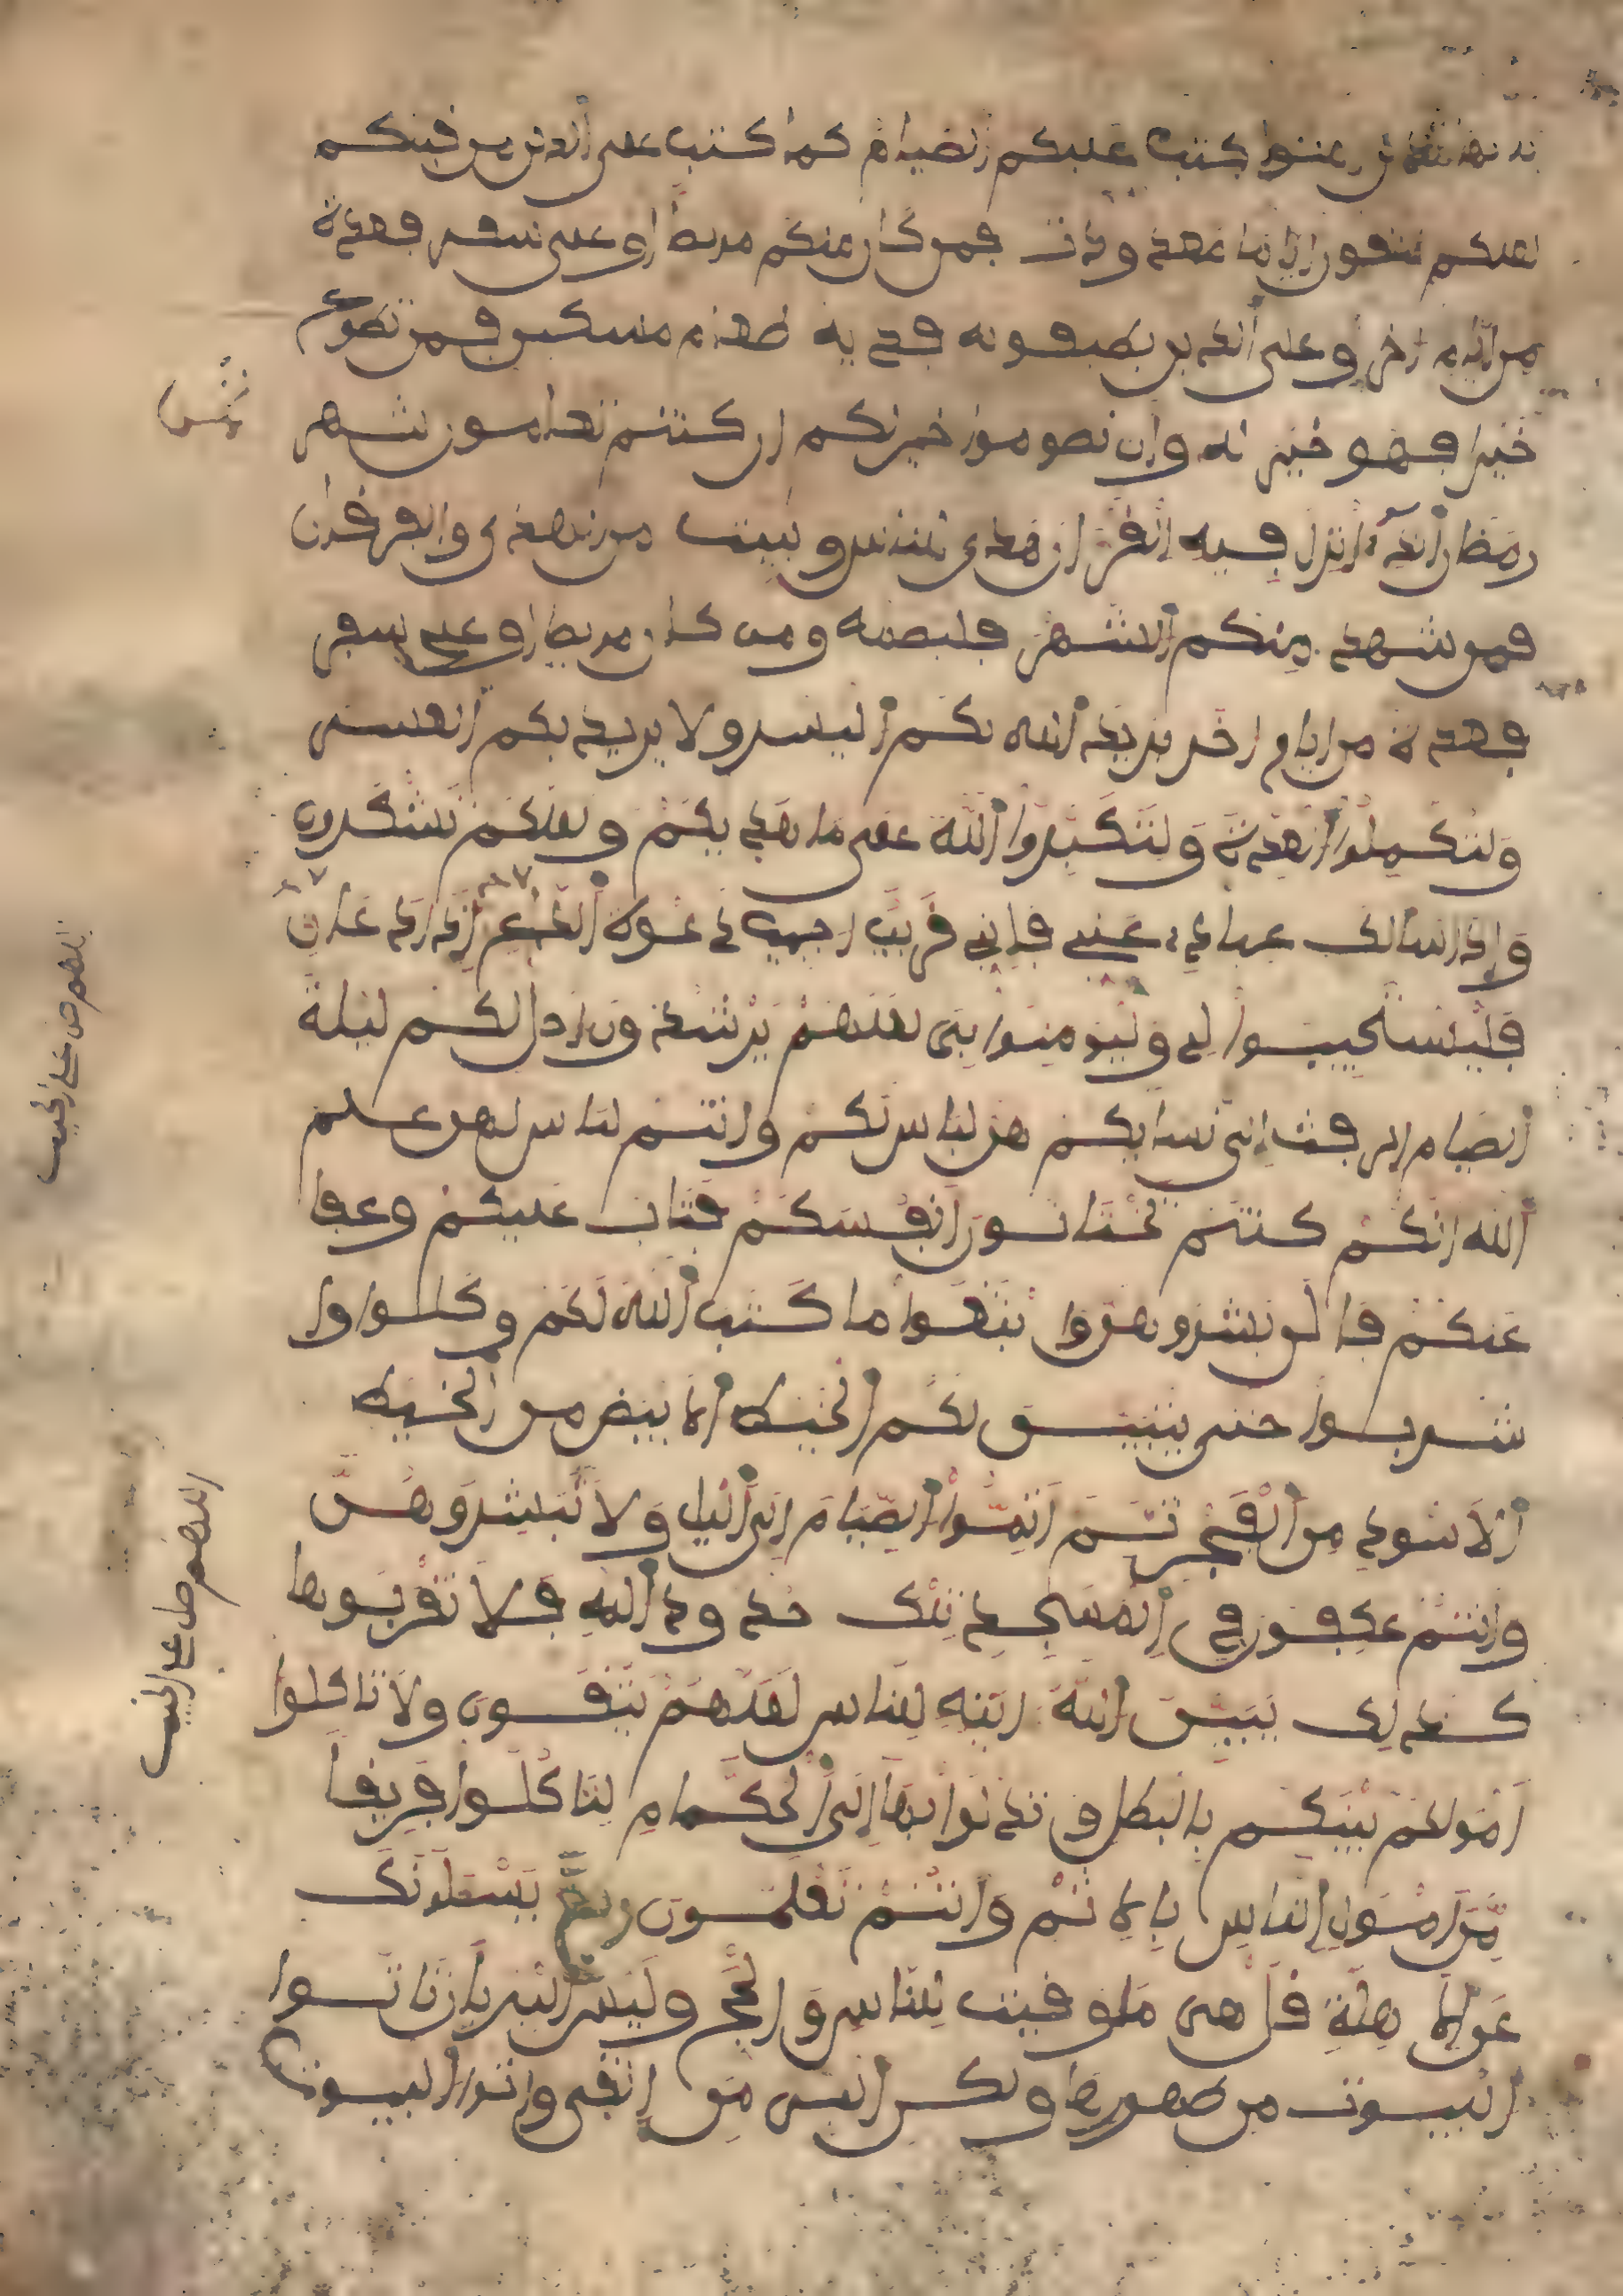 يايها الذين ءامنوا كتب عليكم الصيام كما كتب على الذين من قبلكم
لعلكم تتقون اياما معدودات فمن كان منكم مريضا او على سفر فعدة
من ايام اخر وعلى الذين يطيقونه فدية طعام مسكين فمن تطوع
خيرا فهو خير له وان تصوموا خير لكم ان كنتم تعلمون شهر
رمضان الذى انزل فيه القرءان هدى للناس وبينت من الهدى والفرقان
فمن شهد منكم الشهر فليصمه ومن كان مريضا او على سفر
فعدة من ايام اخر يريد الله بكم اليسر ولا يريد بكم العسر
ولتكملوا العدة ولتكبروا الله على ما هديكم ولعلكم تشكرون
واذا سالك عبادي عني فاني قريب اجيب دعوة الداع اذا دعان
فليستجيبوا لي وليومنوا بي لعلهم يرشدون احل لكم ليلة
الصيام الرفث الى نسايكم هن لباس لكم وانتم لباس لهن علم
الله انكم كنتم تختانون انفسكم فتاب عليكم وعفا
عنكم فالن بشروهن وابتغوا ما كتب الله لكم وكلوا وا
شربوا حتى يتبين لكم الخيط الابيض من الخيط
الاسود من الفجر ثم اتموا الصيام الى اليل ولا تبشروهن
وانتم عكفون في المسجد تلك حدود الله فلا تقربوها
كذلك يبين الله ءايته للناس لعلهم يتقون ولا تاكلوا
امولكم بينكم بالبطل وتدلوا بها الى الحكام لتاكلوا فريقا
من امول الناس بالاثم وانتم تعلمون يسلونك
عن الاهلة قل هى موقيت للناس والحج وليس البر بان تاتوا
البيوت من ظهورها ولكن البر من اتقى واتوا البيوت
اللهم صل على الحبيب
اللهم صل على الحبيب